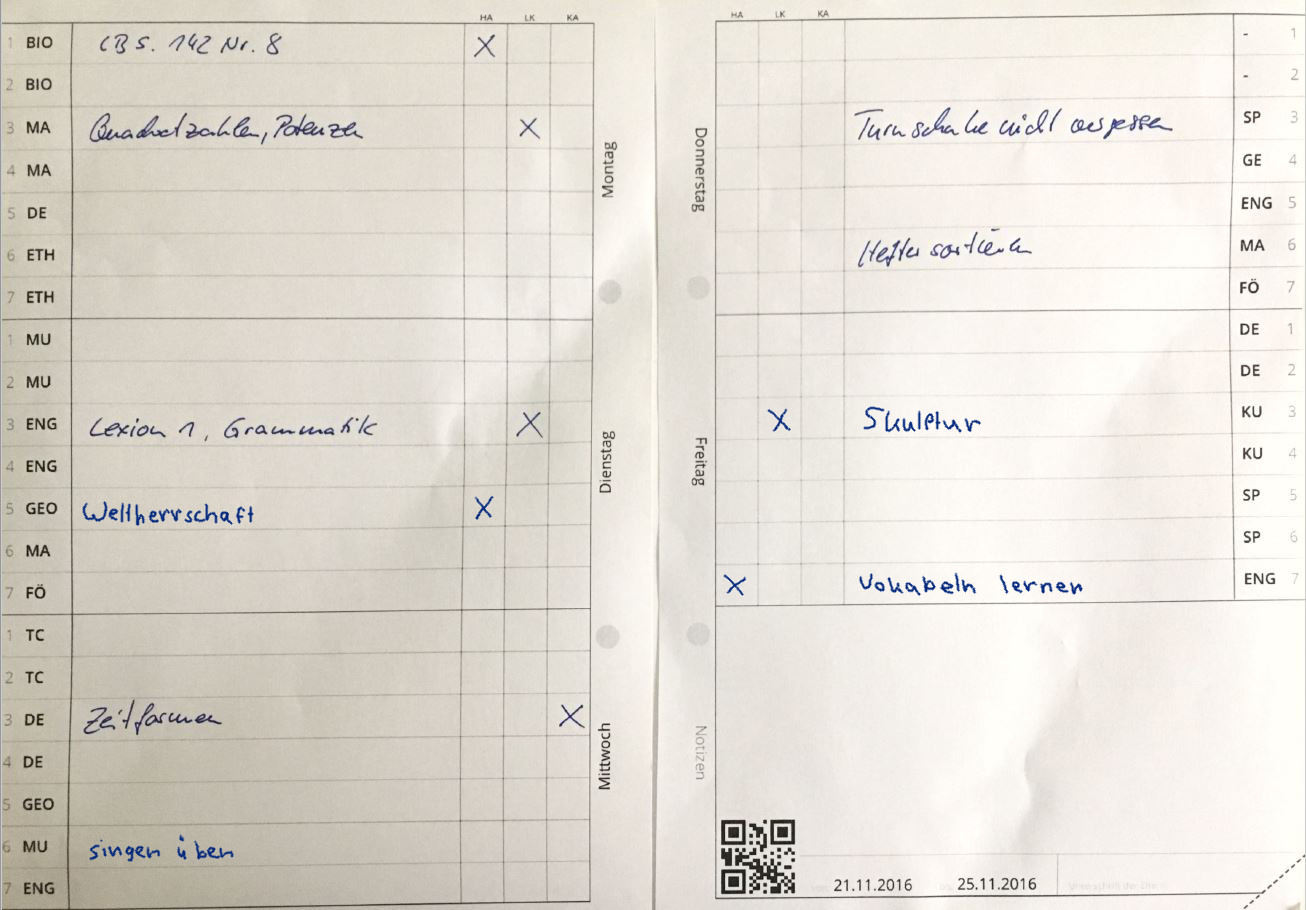 HA LK KA
1 BIO LB S. 142 Nr. 8 X
2 BIO
3 MA Quadratzahlen, Potenzen X
4 MA
5 DE
6 ETH
7 ETH
Montag
1 MU
2 MU
3 ENG Lexion 1, Grammatik X
4 ENG
5 GEO Weltherrschaft X
6 MA
7 FÖ
Dienstag
1 TC
2 TC
3 DE Zeitformen X
4 DE
5 GEO
6 MU singen üben
7 ENG
Mittwoch
HA LK KA
- 1
- 2
Turnschuhe nicht vergessen SP 3
GE 4
ENG 5
Hefter sortieren MA 6
FÖ 7
Donnerstag
DE 1
DE 2
X Skulptur KU 3
KU 4
SP 5
SP 6
X Vokabeln lernen ENG 7
Freitag
Notizen
21.11.2016 25.11.2016